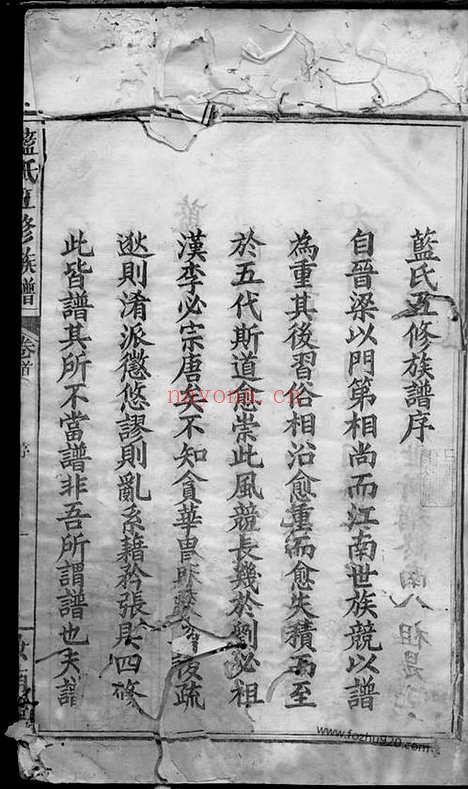 藍氏五修族譜序
自晉梁以門第相尚而江南世族競以譜
為重其後習俗相沿愈重而愈失積而至
於五代斯道愈崇此風競長幾於劉必祖
漢李必宗唐矣不知貪華冒 疏
逖則淆派懲悠謬則亂系籍矜張 四條
此皆譜其所不當譜非吾所謂譜也夫譜
藍氏五修族譜
卷首
序
nayona.cn
www.fozhu920.com